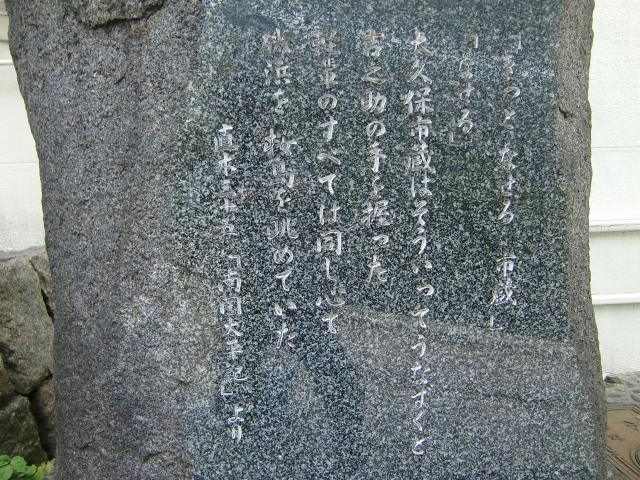 「きっとなける 市蔵」
「なける」
大久保市蔵はそういってうなずくと
吉之助の手を握った
軽輩のすべては同じ心で
磯浜を 桜島を 眺めていた
直木三十五 「南国太平記」より